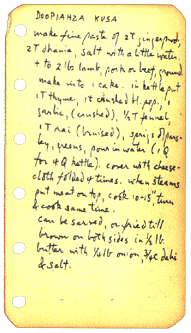 DOOPIAHZA KUSA
make fine paste of 2 T. gingerroot,
2T dhania, salt with a little water,
+ to 2 lb lamb, pork or beef, ground
make into 1 cake. in kettle put
1 T thyme, 1t crushed H. pop.,
garlic, (crushed), ½ T fennel
1 T rai (bruised), 2 of pars-
ley, pour in water (1 Q
for 4 Q kettle). cover with cheese-
cloth folded 4 times. when steams
put meat on top, cook 10-15, turn
& cook same time.
can be served, or fried till
brown on both sides in ½ lb.
butter with ¼ lb onion, ¾ c dahi
& salt.